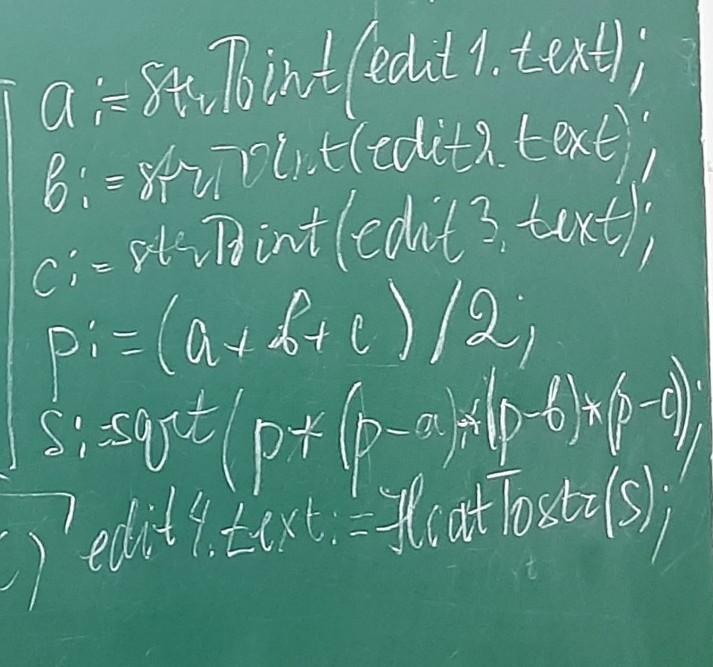 a:=strToint(edit1.text);
b:=strToint(edit2.text);
c:=strToint(edit3.text);
p:=(a+b+c)/2;
s:=sqrt(p*(p-a)*(p-b)*(p-c));
edit4.text:=floatTostr(s);